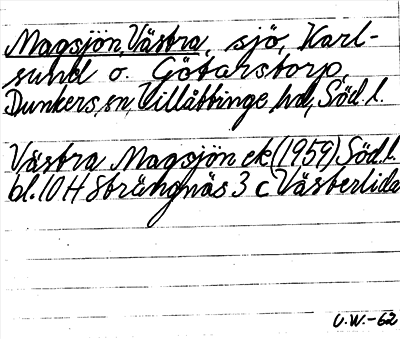 Magsjön, Västra, sjö, Karl-
sund o. Götarstorp,
Dunkers, sn, Villåttinge, hd, Söd. l.
Västra Magsjön ek (1959) Söd. l.
bl. 10 H Strängnäs 3 c Västerlida
U.W.-62